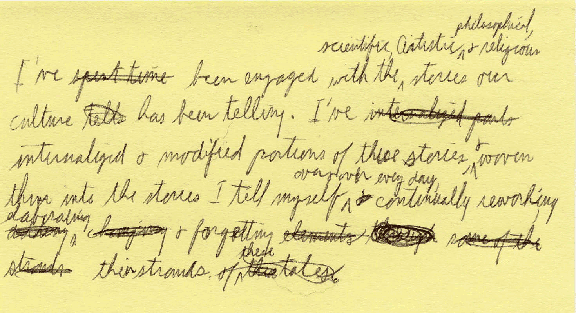 philosophical,
scientific, artistic, & religious
I've spent time been engaged with the stories our
culture tells has been telling. I've internalized parts
internalized & modified portions of these stories, & woven
over & over every day
them into the stories I tell myself, & continually reworking
elaborating
changing & forgetting elements some of the
these
strands thin strands of tales.